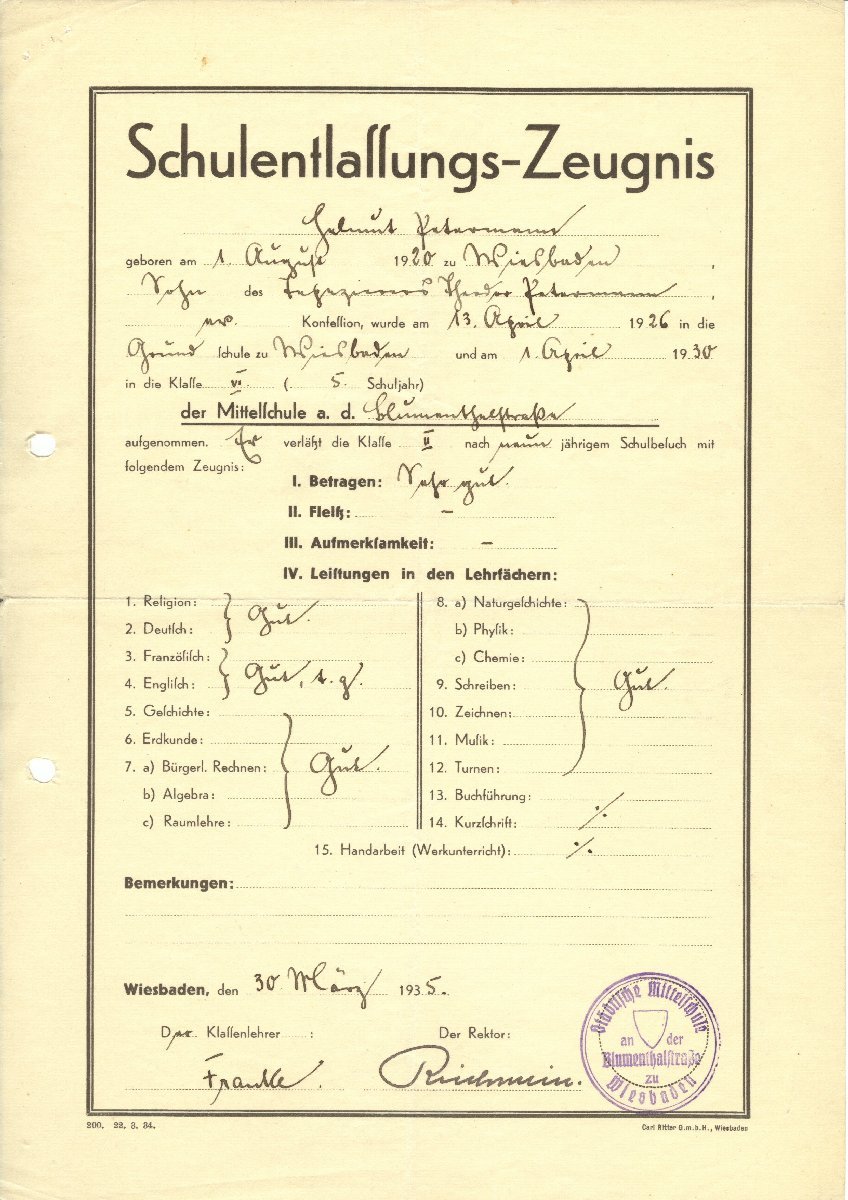 Schulentlaſſungs-Zeugnis
Helmut Petermann
geboren am 1. August 1920 zu Wiesbaden,
Sohn des Tapezierers Theodor Petermann,
ev. Konfeſſion, wurde am 13. April 1926 in die
Grund ſchule zu Wiesbaden und am 1. April 1930
in die Klaſſe VI (5. Schuljahr)
der Mittelſchule a. d. Blumenthalstraße
aufgenommen. Er verläßt die Klaſſe II nach neun jährigem Schulbeſuch mit
folgendem Zeugnis:
I. Betragen: Sehr gut.
II. Fleiß: –
III. Aufmerkſamkeit: –
IV. Leiſtungen in den Lehrfächern:
1. Religion:
2. Deutſch:
Gut.
3. Franzöſiſch:
4. Engliſch:
Gut, t. g.
5. Geſchichte:
6. Erdkunde:
7. a) Bürgerl. Rechnen:
b) Algebra:
c) Raumlehre:
Gut.
8. a) Naturgeſchichte:
b) Phyſik:
c) Chemie:
9. Schreiben:
10. Zeichnen:
11. Muſik:
12. Turnen:
Gut.
13. Buchführung:
14. Kurzſchrift:
·/.
15. Handarbeit (Werkunterricht): ·/.
Bemerkungen:
Wiesbaden, den 30. März 1935.
Der Klaſſenlehrer :
Der Rektor:
Franke.
Städtiſche Mittelſchule
an der
Blumenthalſtraße
zu
Wiesbaden
200. 22. 3. 34.
Carl Ritter G.m.b.H., Wiesbaden